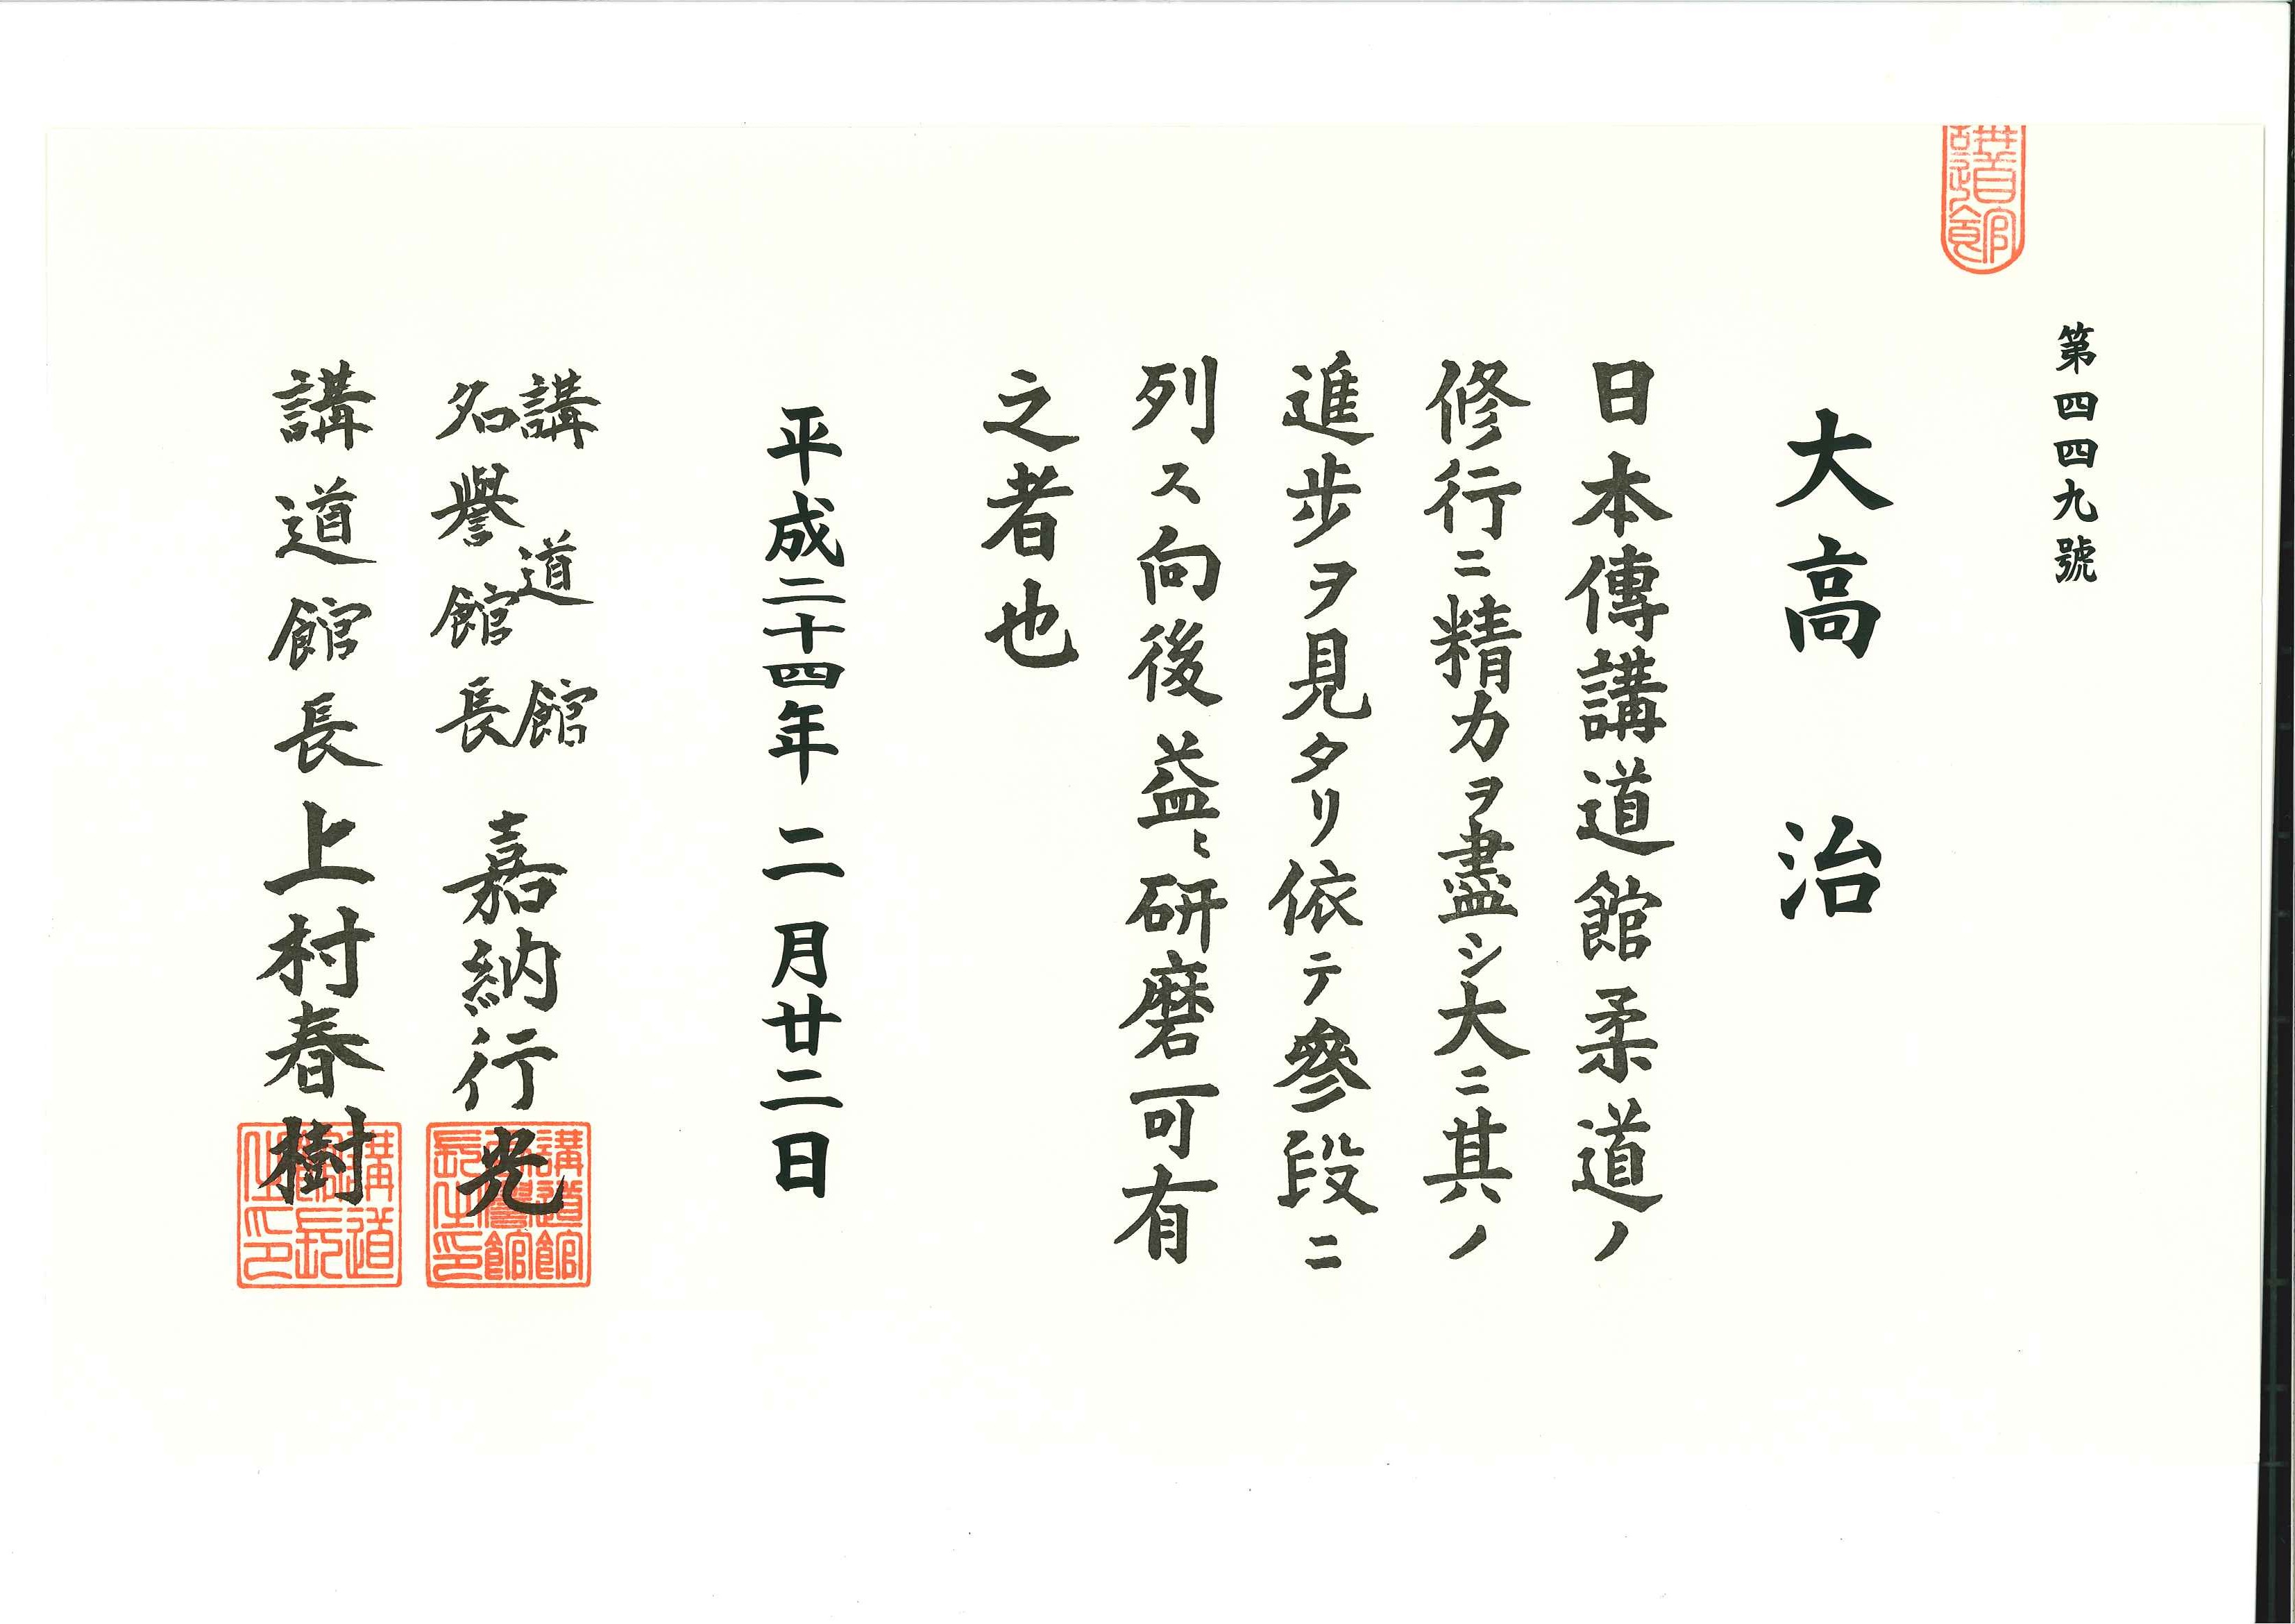 第四四九號
講道館
大高治
日本傳講道館柔道ノ
修行ニ精力ヲ盡シ大ニ其ノ
進歩ヲ見タリ依テ參段ニ
列ス向後益〻研磨可有
之者也
平成二十四年二月廿二日
講道館
名譽館長
嘉納行光
講道館名譽館長之印
講道館長上村春樹
講道館長之印